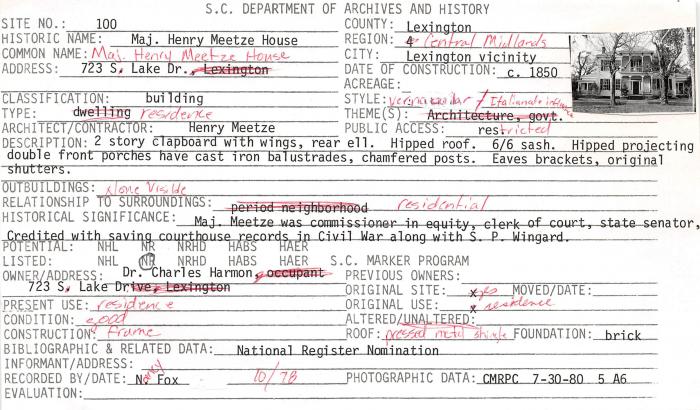 S.C. DEPARTMENT OF ARCHIVES AND HISTORY
SITE NO.: 100 COUNTY: Lexington
HISTORIC NAME: Maj. Henry Meetze House REGION: 4 Central Midlands
COMMON NAME: Maj. Henry Meetze House CITY: Lexington vicinity
ADDRESS: 723 S. Lake Dr., Lexington DATE OF CONSTRUCTION: c. 1850
ACREAGE:
CLASSIFICATION: building STYLE: vernacular / Italianate influence
TYPE: dwelling residence THEME(S): Architecture, govt.
ARCHITECT/CONTRACTOR: Henry Meetze PUBLIC ACCESS: restricted
DESCRIPTION: 2 story clapboard with wings, rear ell. Hipped roof. 6/6 sash. Hipped projecting
double front porches have cast iron balustrades, chamfered posts. Eaves brackets, original
shutters.
OUTBUILDINGS: None Visible
RELATIONSHIP TO SURROUNDINGS: period neighborhood residential
HISTORICAL SIGNIFICANCE: Maj. Meetze was commissioner in equity, clerk of court, state senator,
Credited with saving courthouse records in Civil War along with S. P. Wingard.
POTENTIAL: NHL NR NRHD HABS HAER
LISTED: NHL NR NRHD HABS HAER S.C. MARKER PROGRAM
OWNER/ADDRESS: Dr. Charles Harmon, occupant PREVIOUS OWNERS:
723 S. Lake Drive, Lexington ORIGINAL SITE: x yes MOVED/DATE:
PRESENT USE: residence ORIGINAL USE: x residence
CONDITION: good ALTERED/UNALTERED:
CONSTRUCTION: frame ROOF: pressed metal shingle FOUNDATION: brick
BIBLIOGRAPHIC & RELATED DATA: National Register Nomination
INFORMANT/ADDRESS:
RECORDED BY/DATE: N. ancy Fox 10/78 PHOTOGRAPHIC DATA: CMRPC 7-30-80 5 A6
EVALUATION: